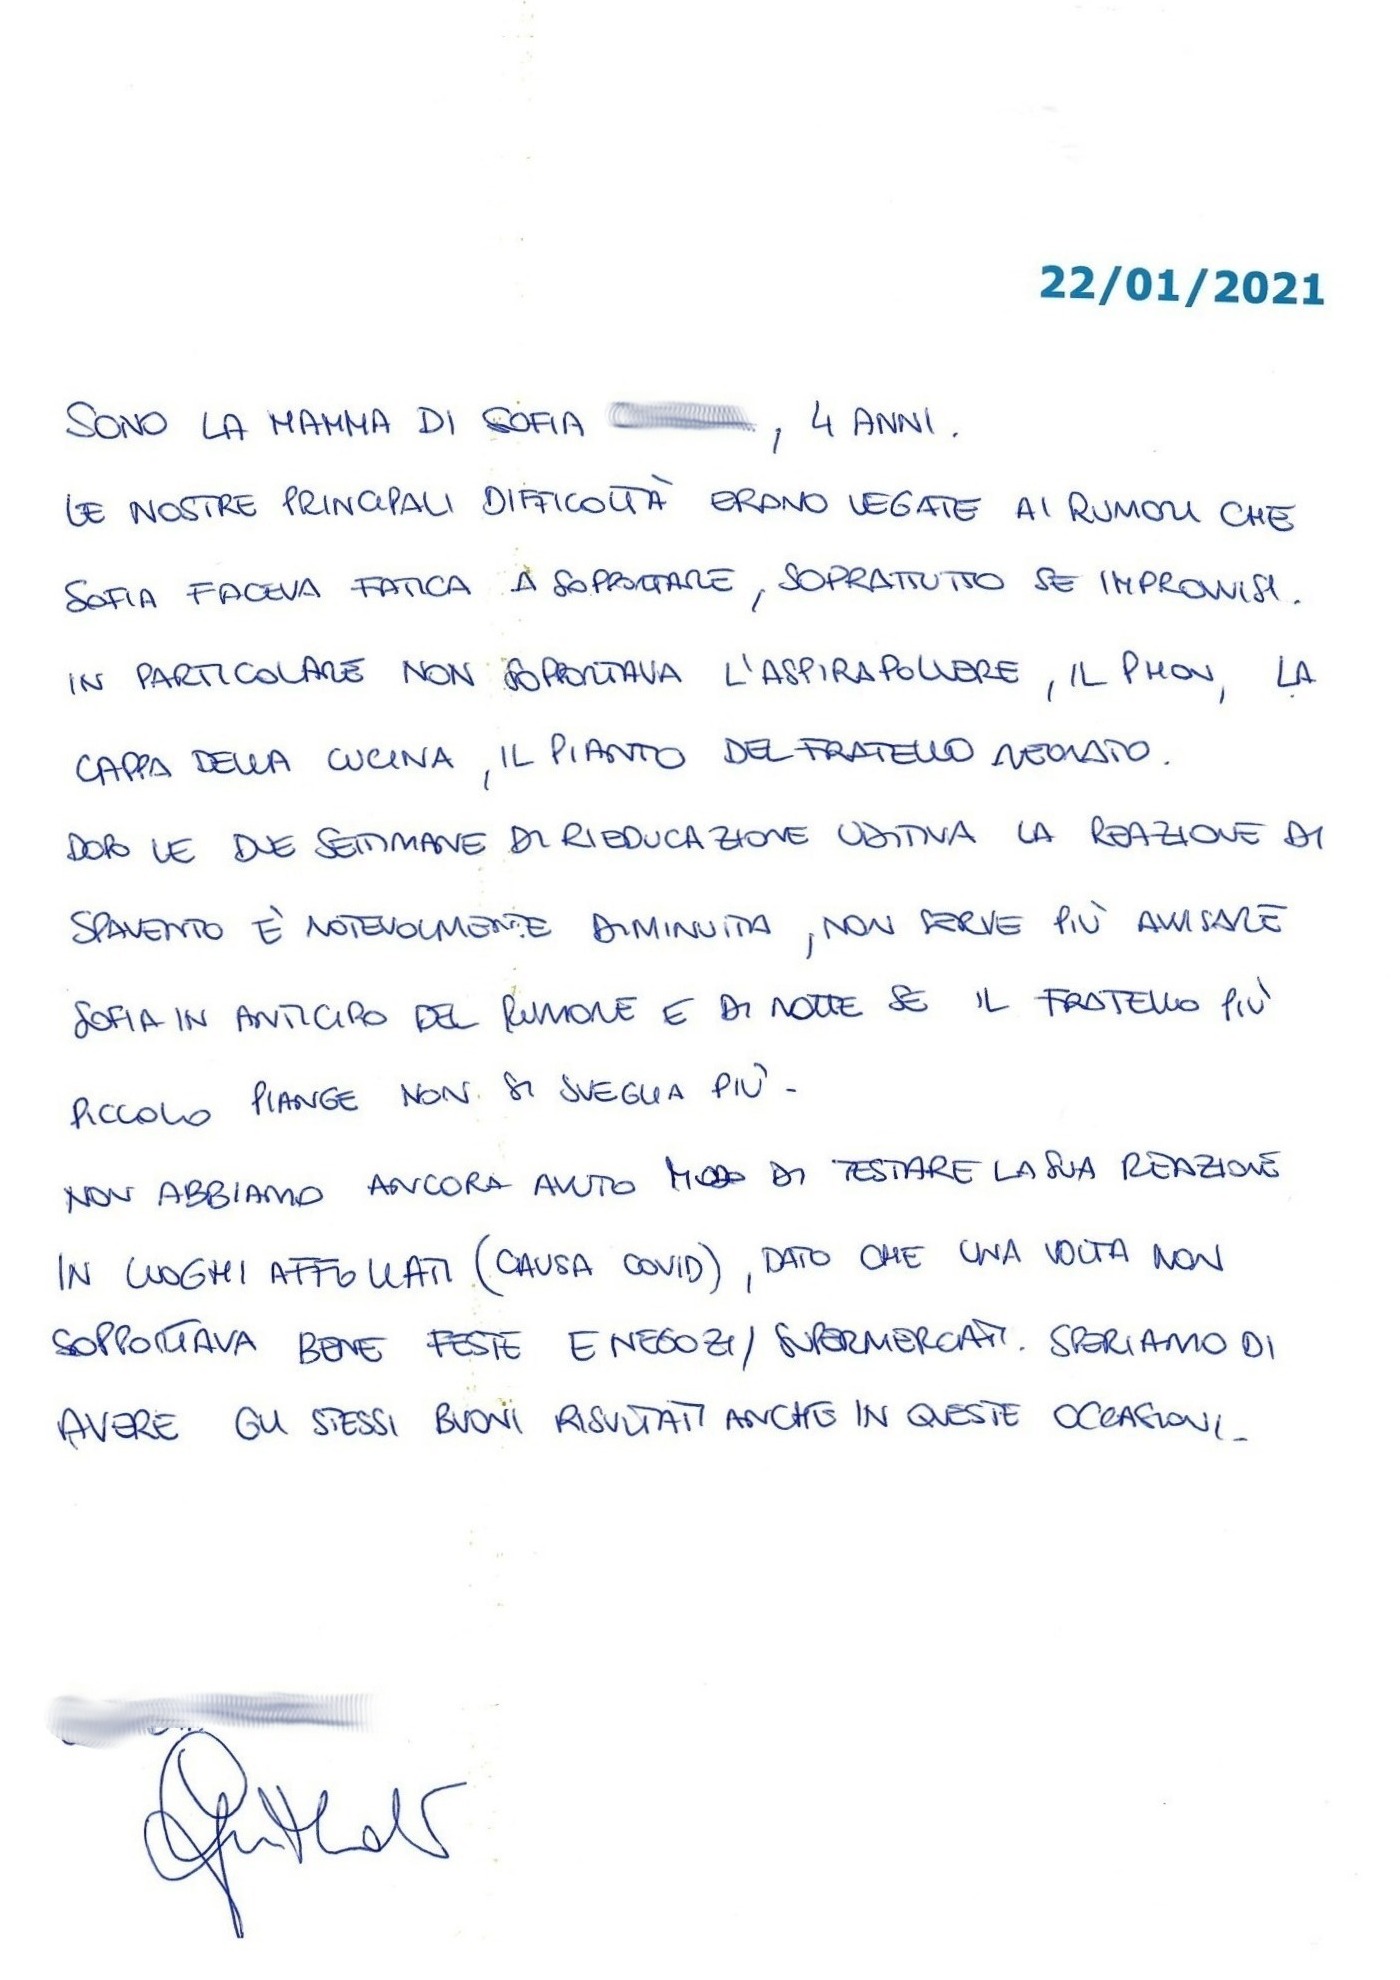 22/01/2021
SONO LA MAMMA DI SOFIA , 4 ANNI.
LE NOSTRE PRINCIPALI DIFFICOLTÀ ERANO LEGATE AI RUMORI CHE
SOFIA FACEVA FATICA A SOPPORTARE, SOPRATTUTTO SE IMPROVVISI.
IN PARTICOLARE NON SOPPORTAVA L'ASPIRAPOLVERE, IL PHON, LA
CAPPA DELLA CUCINA, IL PIANTO DEL FRATELLO NEONATO.
DOPO LE DUE SETTIMANE DI RIEDUCAZIONE UDITIVA LA REAZIONE DI
SPAVENTO È NOTEVOLMENTE DIMINUITA, NON SERVE PIÙ AVVISARE
SOFIA IN ANTICIPO DEL RUMORE E DI NOTTE SE IL FRATELLO PIÙ
PICCOLO PIANGE NON SI SVEGLIA PIÙ-
NON ABBIAMO ANCORA AVUTO MODO DI TESTARE LA SUA REAZIONE
IN LUOGHI AFFOLLATI (CAUSA COVID), DATO CHE UNA VOLTA NON
SOPPORTAVA BENE FESTE E NEGOZI/SUPERMERCATI. SPERIAMO DI
AVERE GLI STESSI BUONI RISULTATI ANCHE IN QUESTE OCCASIONI-